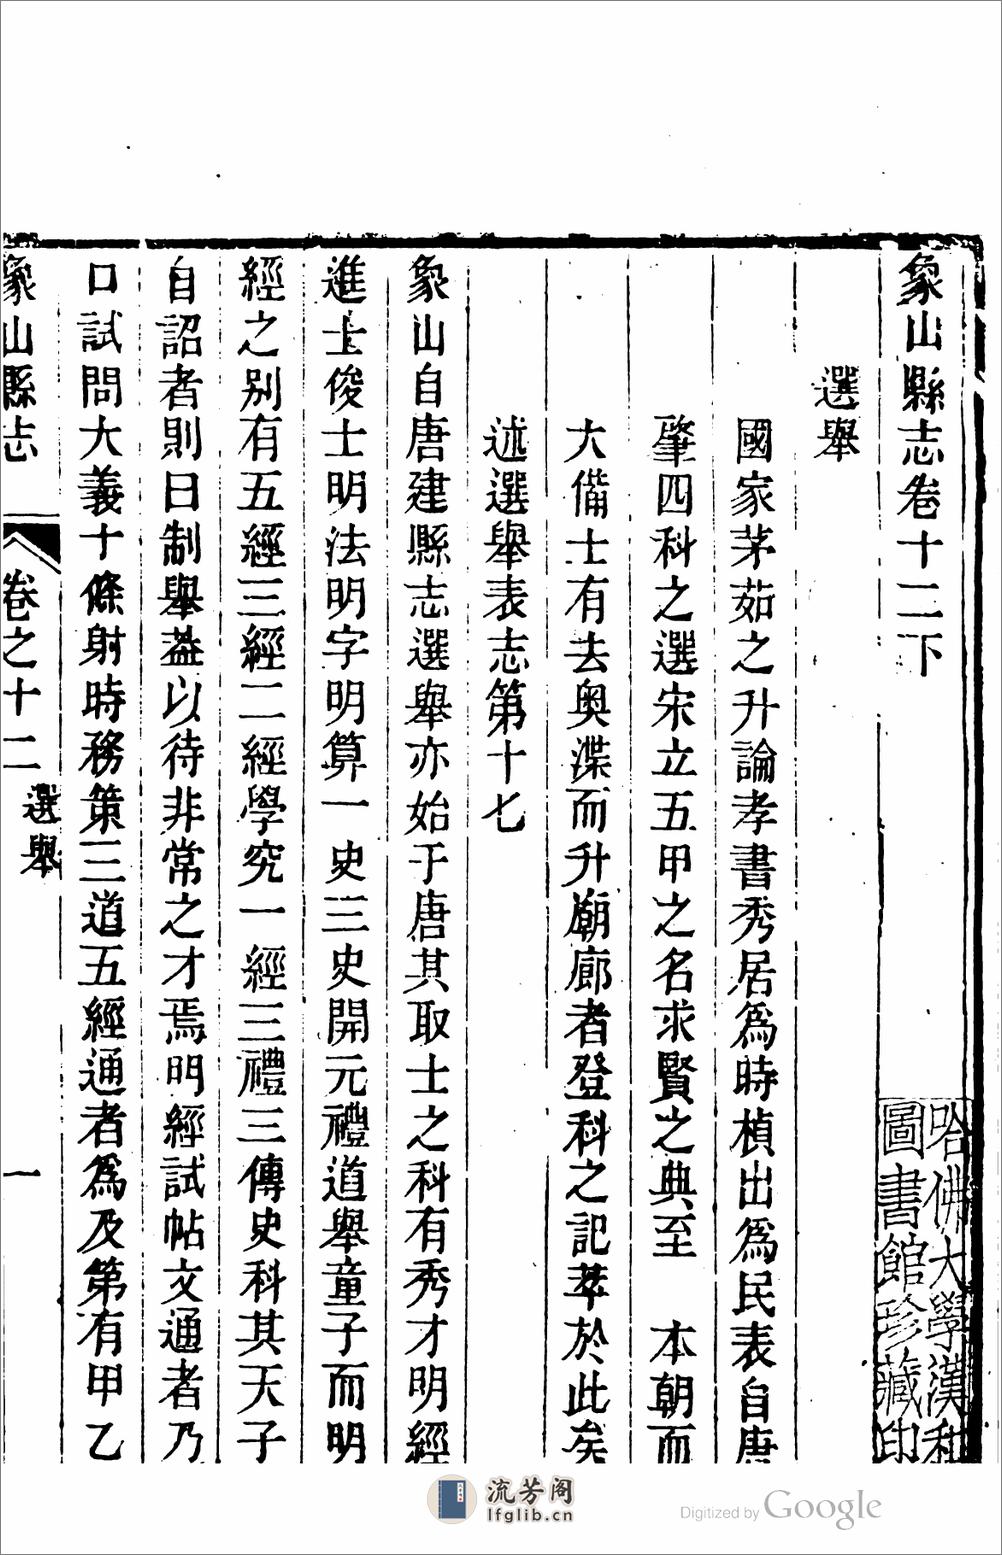 象山縣志卷十二下
選舉
國家茅茹之升論孝書秀居爲時楨出爲民表自唐
肇四科之選宋立五甲之名求賢之典至　本朝而
大備士有去奥渫而升廟廊者登科之記萃於此矣
述選舉表志第十七
象山自唐建縣志選舉亦始于唐其取士之科有秀才明經
進士俊士明法明字明算一史三史開元禮道舉童子而明
經之别有五經三經二經學究一經三禮三傳史科其天子
自詔者則曰制舉蓋以待非常之才焉明經試帖文通者乃
口試問大義十條射時務策三道五經通者爲及第有甲乙
象山縣志
卷之十二
選舉
一
哈佛大學漢和
圖書館珍藏印
流芳阁
lfglib.cn
Digitized by Google